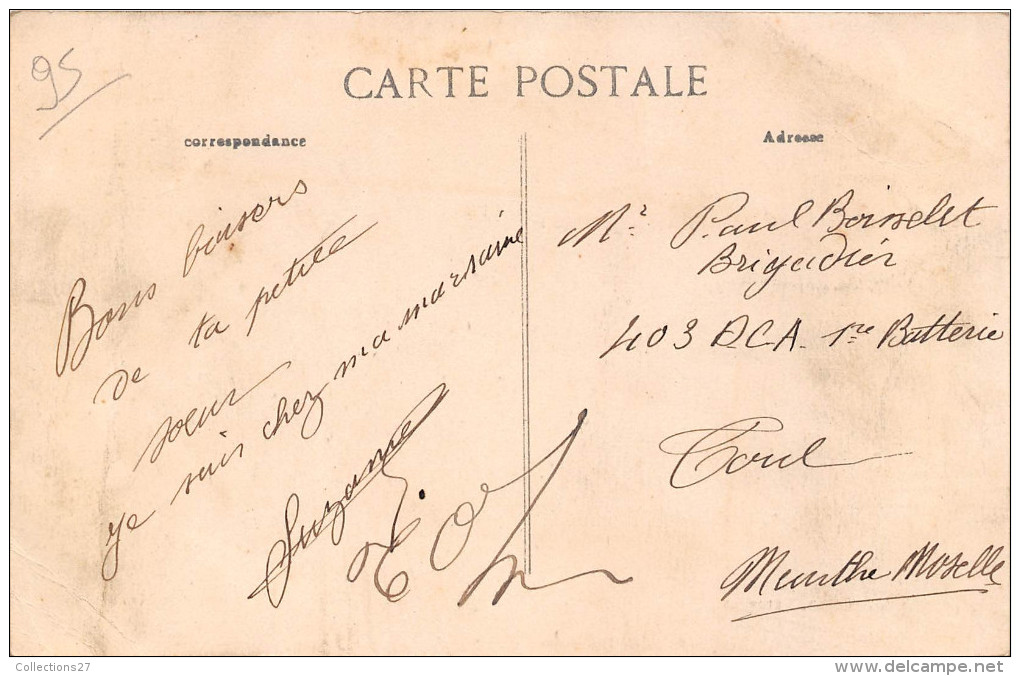 95
CARTE POSTALE
correspondance
Adresse
Bons baisers
de ta petite
soeur
je suis chez ma marraine
Suzanne
Mr Paul Boisselet
Brigadier
403 D.C.A. 1re Batterie
Toul
Meurthe Moselle
Collections27
www.delcampe.net